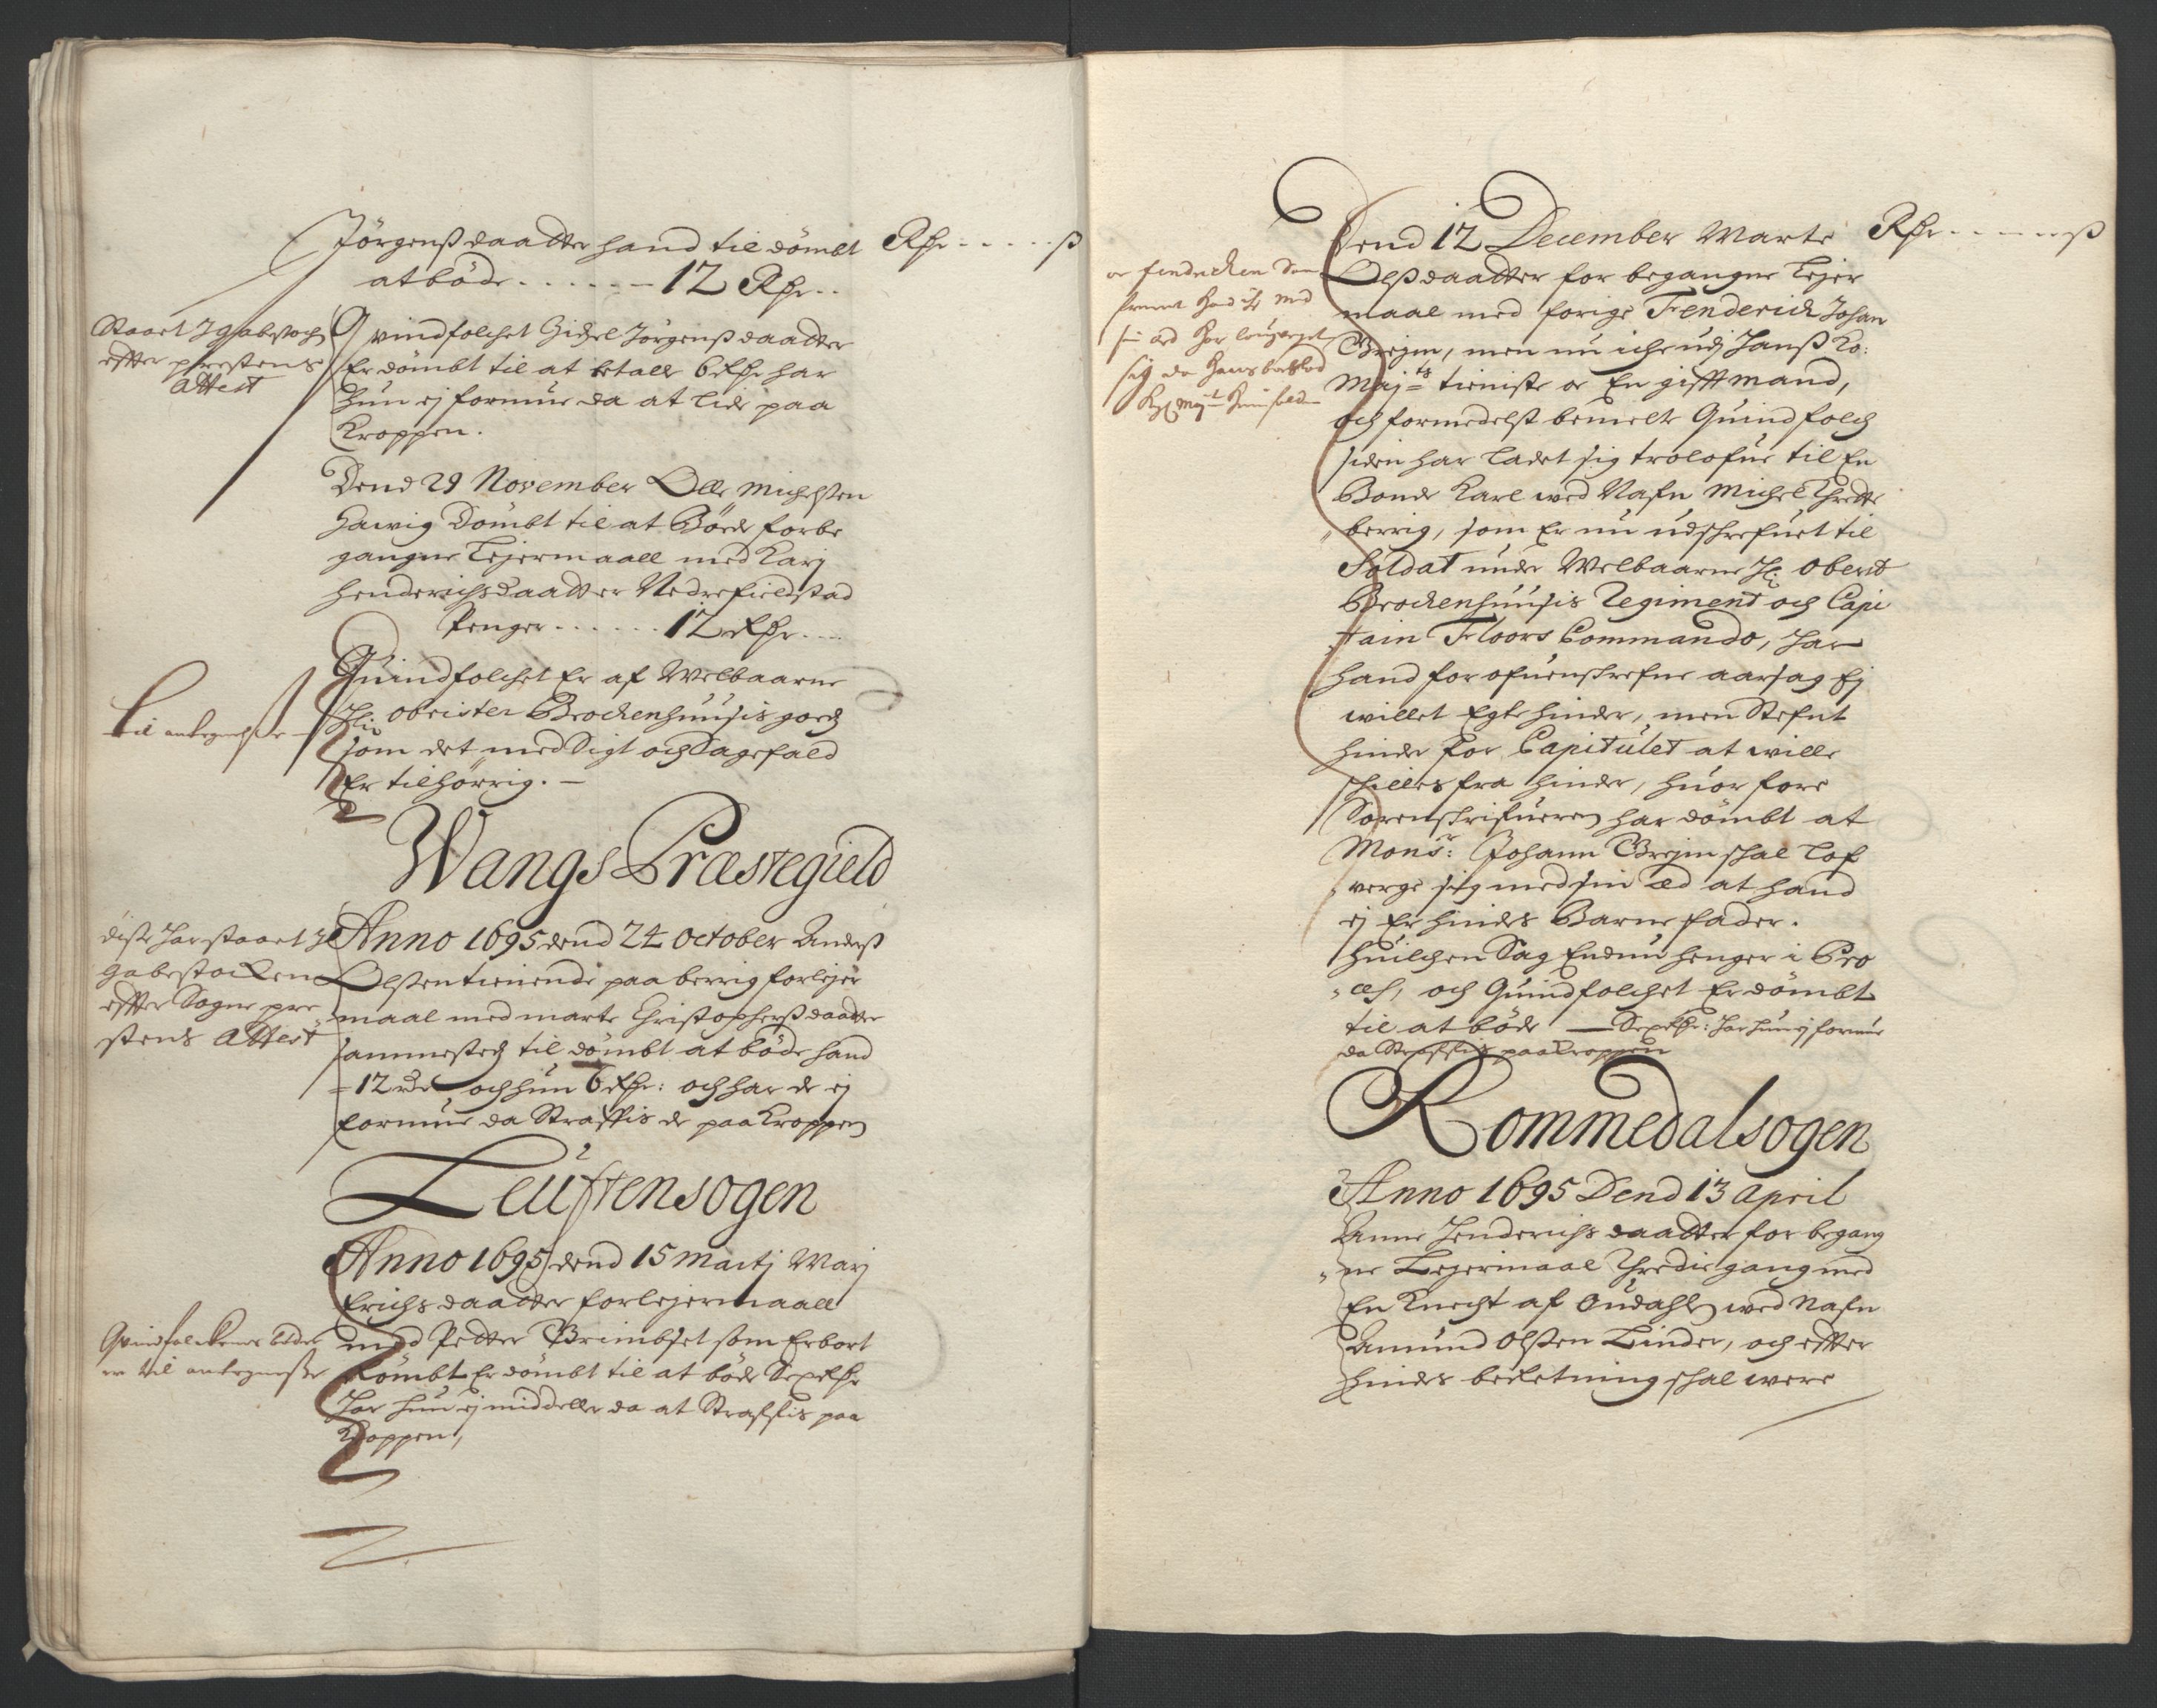 Jörgenßdaatter hand til dömbt Rdr - - - - - ß
at böde - - - - - - 12 Rdr - -
Staaet J gabestoch
effter prestens
Attest
Qvindfolchet Gidsel Jörgenßdaatter
Er dömbt til at betalle 6 Rdr har
hun ej formue da at lide paa
Kroppen.
Dend 29 November Olle Michelsten
Hawig Dömbt til at Böde forbe
gangne Lejermaall med Karj
Henderichsdaatter Nedrefieldstad
Penger - - - - - - 12 Rdr - - -
til
Quindfolchet Er af Welbaarne
Hr: obrister Brockenhuusis gods
som det med Sigt och Sagefald
Er tilhörrig. —
Wangs Præstegield
diße har staaet J
gabestocken
effter Sogne pre
stens Attest
Anno 1695 dend 24 October Anderß
Olsten tienende paa berrig for lejer
maal med marte Christopherßdaatter
sammested til dömbt at böde hand
12 Rdr och hun 6 Rdr: och har de ej
formue da Straffis de paa Kroppen
Leuftensogen
Anno 1695 dend 15 Martj Marj
Erichsdaatter for lejermaall
Qvindfolckenes böder
er til
med Petter Brimbset som Er bort
Römbt Er dömbt til at böde Sex Rdr
Har hun ej middeller da at Straffis paa
Kroppen,
Dend 12 December Marte Rdr - - - - - ß
er fendricken
hand med
sin eed har
sig da hans
Kgl Mayt
Olßdaatter for begangne Lejer
maal med forige Fenderich Johan
Brejm, men nu iche udj Hanß Ko:
Maj:ts tieniste er En gifft mand,
och formedelst bemelte Quindfolch
siden har ladet sig trolofue til En
Bonde Karl wed Nafn Michel Thrette
berrig, som Er nu udschrefuet til
Soldat under Welbaarne Hr: Oberst
Brockenhuusis Regiment och Capi
tain Floors Commando, Har
hand for ofuenschrefne aarsag Ej
willet Egte hinde, men Stefnt
hinde for Capitulet at wille
schilles fra hinde, huor fore
Sorenschrifueren har dömbt at
Monsr: Johann Brejm schal lof
verge sig med sin ed at hand
ej Er hindes Barne fader.
Huilchen Sag Endnu henger i Pro
ces, och Quindfolchet Er dömbt
til at böde — Sex Rdr: har hun ej formue
da Straffis paa Kroppen
Rommedalsogen
Anno 1695 Dend 13 April
Anne Henderichsdaatter for begang
ne Lejermaal Thredie gang med
En Knecht af Oudahlen wed Nafn
Amund Olsten Linder, och effter
hindes beretning schal were